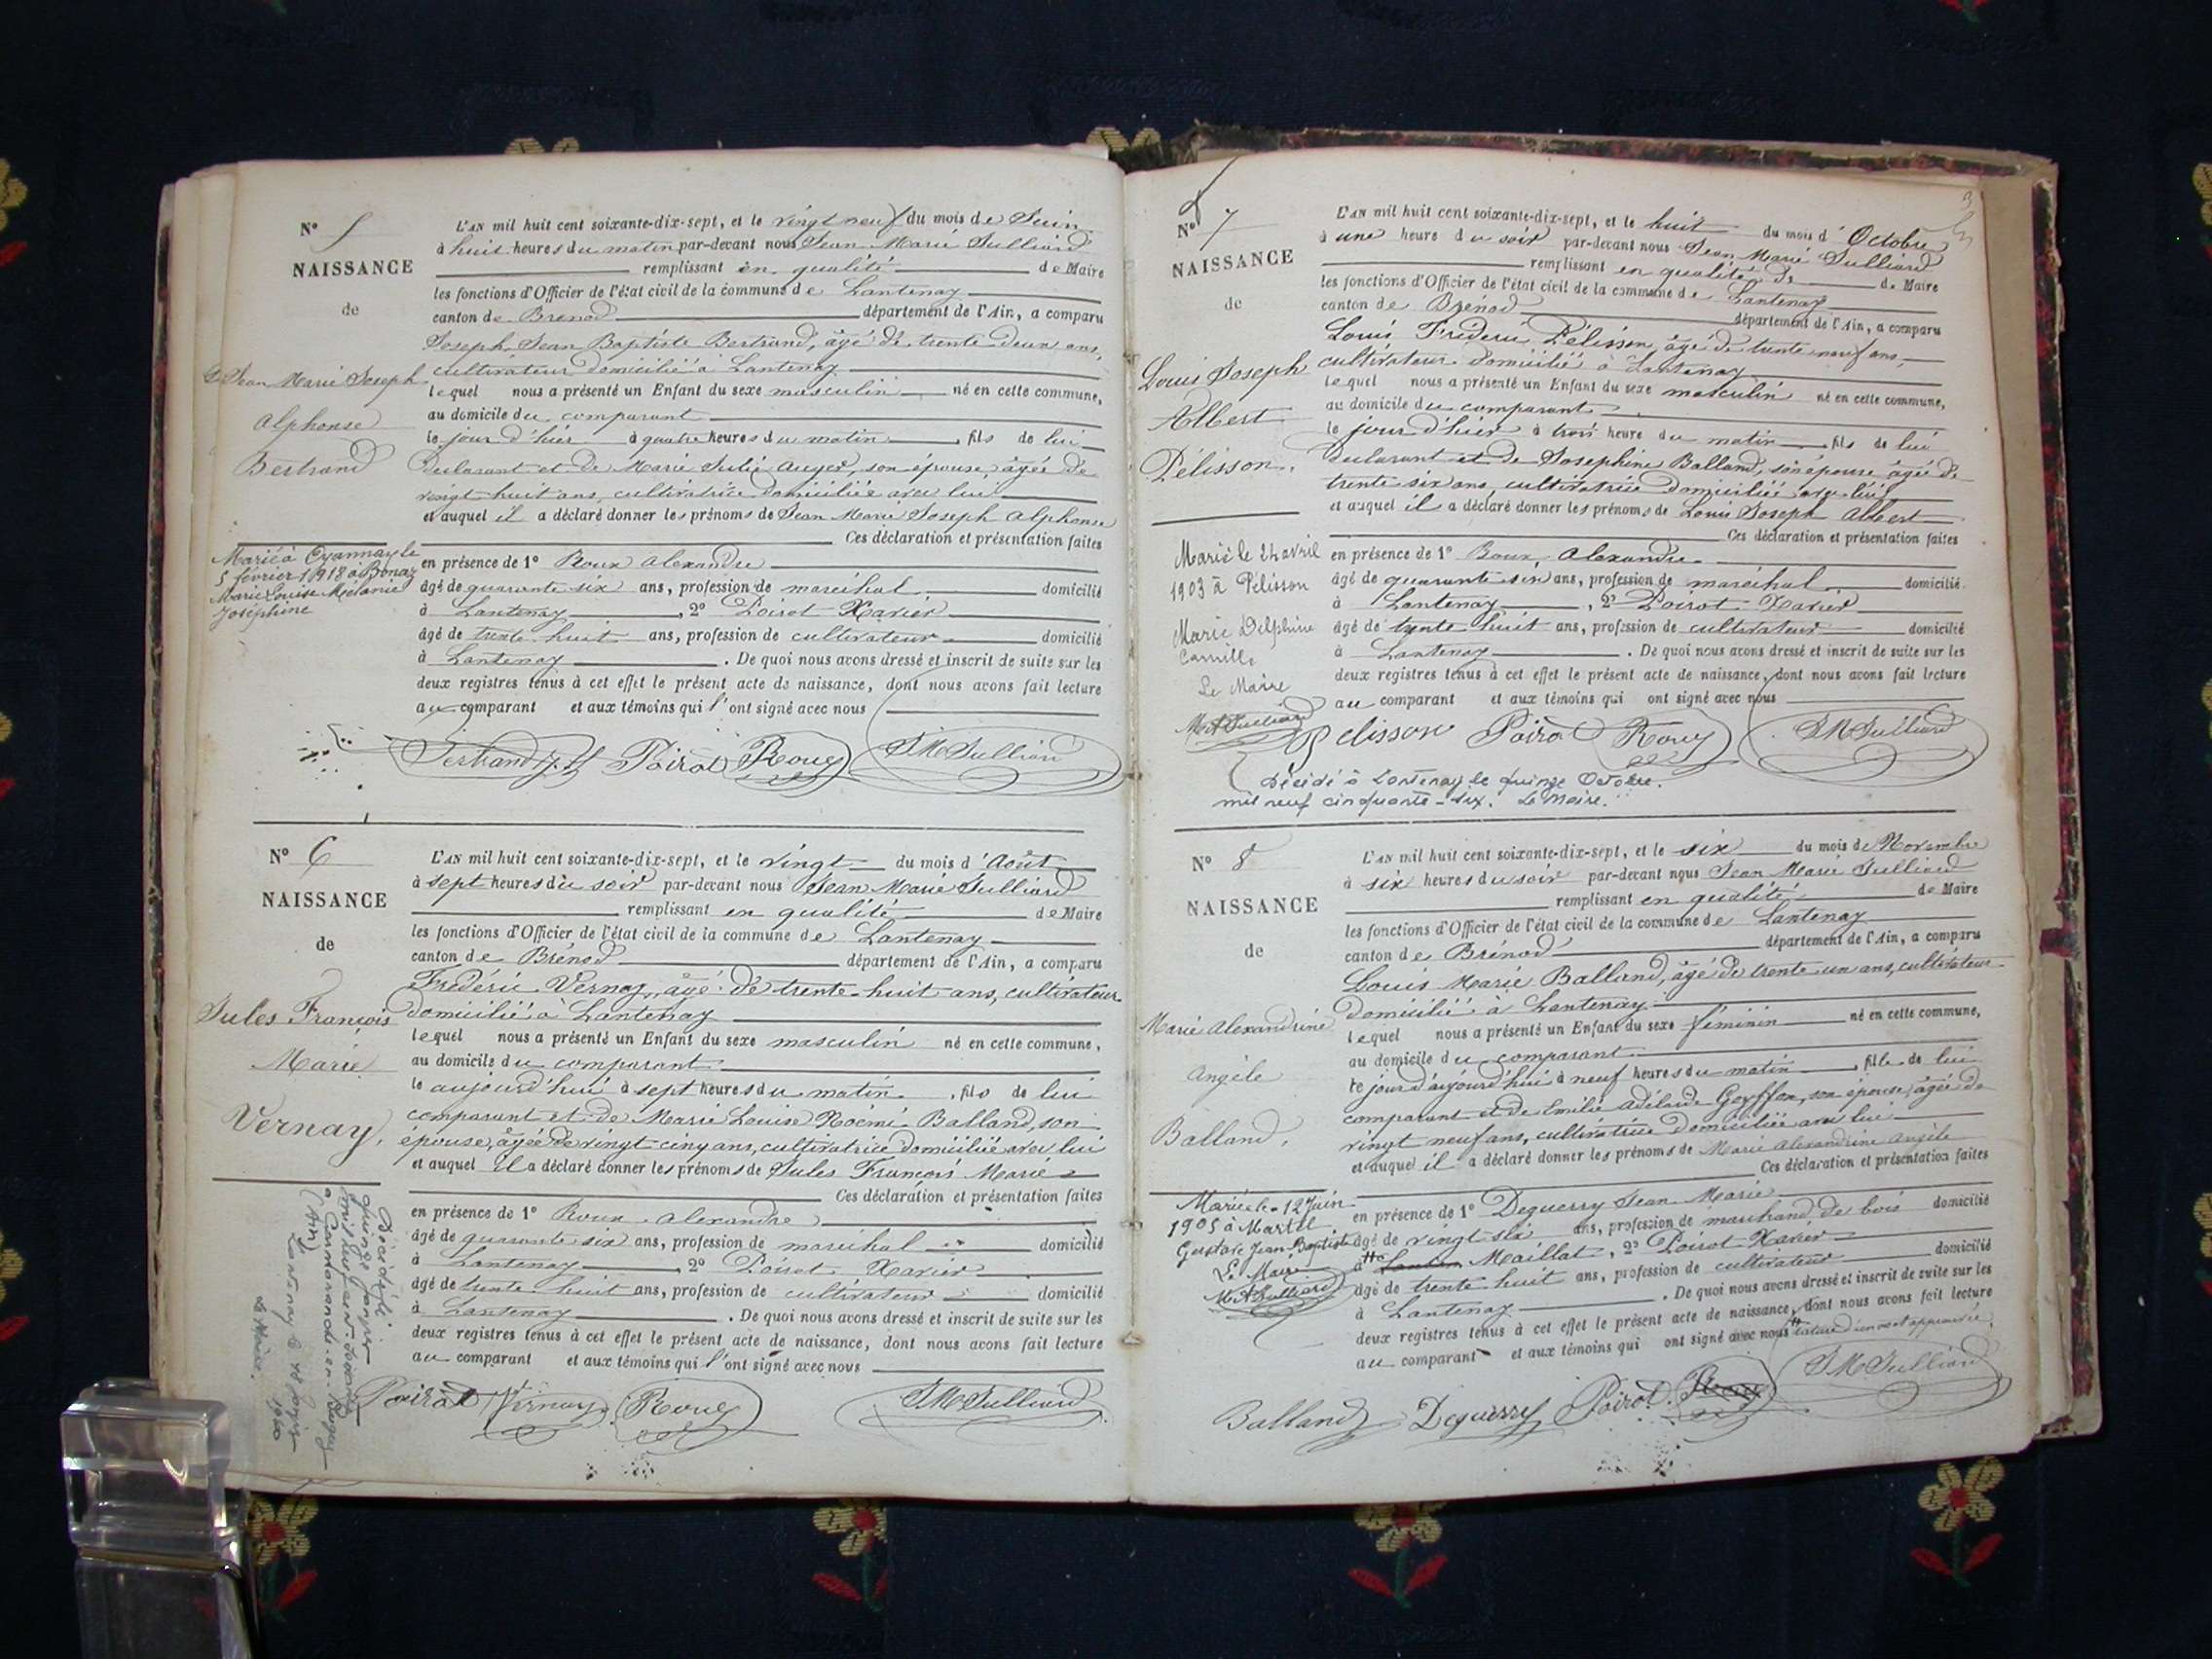 N° 5
NAISSANCE
de
Jean Marie Joseph
Alphonse
Bertrand
Marié à Oyonnax le
5 février 1918 à Bonaz
Marie Louise Mélanie
Joséphine
L'AN mil huit cent soixante-dix-sept, et le vingt neuf du mois de Juin
à huit heures du matin par-devant nous Jean Marie Julliard
remplissant en qualité de Maire
les fonctions d'Officier de l'état civil de la commune de Lantenay
canton de Brenod département de l'Ain, a comparu
Joseph Jean Baptiste Bertrand, âgé de trente deux ans,
cultivateur domicilié à Lantenay
lequel nous a présenté un Enfant du sexe masculin né en cette commune,
au domicile du comparant
le jour d'hier à quatre heures du matin, fils de lui
déclarant et de Marie Julie Auger, son épouse âgée de
vingt huit ans, cultivatrice domiciliée avec lui
et auquel il a déclaré donner les prénoms de Jean Marie Joseph Alphonse
Ces déclaration et présentation faites
en présence de 1° Roux Alexandre
âgé de quarante six ans, profession de maréchal domicilié
à Lantenay, 2° Poirot Xavier
âgé de trente huit ans, profession de cultivateur domicilié
à Lantenay. De quoi nous avons dressé et inscrit de suite sur les
deux registres tenus à cet effet le présent acte de naissance, dont nous avons fait lecture
au comparant et aux témoins qui l'ont signé avec nous
Bertrand Poirot Roux JM Julliard
N° 6
NAISSANCE
de
Jules François
Marie
Vernay,
Décédé le
quinze janvier
mil neuf cent soixante
à Cormaranche-en-Bugey
(Ain)
Lantenay le 18 janvier
1960
Le Maire.
L'AN mil huit cent soixante-dix-sept, et le vingt du mois d'Août
à sept heures du soir par-devant nous Jean Marie Julliard
remplissant en qualité de Maire
les fonctions d'Officier de l'état civil de la commune de Lantenay
canton de Brénod département de l'Ain, a comparu
Frédéric Vernay, âgé de trente-huit ans, cultivateur
domicilié à Lantenay
lequel nous a présenté un Enfant du sexe masculin né en cette commune,
au domicile du comparant
le aujourd'hui à sept heures du matin, fils de lui
comparant et de Marie Louise Noémi Balland, son
épouse, âgée de vingt cinq ans, cultivatrice domiciliée avec lui
et auquel il a déclaré donner les prénoms de Jules François Marie
Ces déclaration et présentation faites
en présence de 1° Roux Alexandre
âgé de quarante six ans, profession de maréchal domicilié
à Lantenay 2° Poirot Xavier
âgé de trente huit ans, profession de cultivateur domicilié
à Lantenay. De quoi nous avons dressé et inscrit de suite sur les
deux registres tenus à cet effet le présent acte de naissance, dont nous avons fait lecture
au comparant et aux témoins qui l'ont signé avec nous
Poirot Vernay Roux JM Julliard
N° 7
NAISSANCE
de
Louis Joseph
Albert
Pélisson.
Marié le 24 avril
1903 à Pélisson
Marie Delphine
Camille
Le Maire
L'AN mil huit cent soixante-dix-sept, et le huit du mois d'Octobre
à une heure du soir par-devant nous Jean Marie Julliard
remplissant en qualité de de Maire
les fonctions d'Officier de l'état civil de la commune de Lantenay
canton de Brénod département de l'Ain, a comparu
Louis Frédéric Pélisson, âgé de trente neuf ans,
cultivateur domicilié à Lantenay
lequel nous a présenté un Enfant du sexe masculin né en cette commune,
au domicile du comparant
le jour d'hier à trois heure du matin, fils de lui
déclarant et de Josephine Balland, son épouse âgée de
trente six ans, cultivatrice domiciliée avec lui
et auquel il a déclaré donner les prénoms de Louis Joseph Albert
Ces déclaration et présentation faites
en présence de 1° Roux, Alexandre
âgé de quarante-six ans, profession de maréchal domicilié
à Lantenay, 2° Poirot Xavier
âgé de trente huit ans, profession de cultivateur domicilié
à Lantenay. De quoi nous avons dressé et inscrit de suite sur les
deux registres tenus à cet effet le présent acte de naissance, dont nous avons fait lecture
au comparant et aux témoins qui ont signé avec nous
Pelisson Poirot Roux JM Julliard
Décédé à Lantenay le quinze Octobre
mil neuf cinquante-six. Le Maire.
N° 8
NAISSANCE
de
Marie Alexandrine
Angèle
Balland,
Mariée le 12 Juin
1905 à Martel
Gustave Jean-Baptiste
Le Maire
L'AN mil huit cent soixante-dix-sept, et le six du mois de Novembre
à six heures du soir par-devant nous Jean Marie Julliard
remplissant en qualité de Maire
les fonctions d'Officier de l'état civil de la commune de Lantenay
canton de Brénod département de l'Ain, a comparu
Louis Marie Balland, âgé de trente un ans, cultivateur
domicilié à Lantenay
lequel nous a présenté un Enfant du sexe féminin né en cette commune,
au domicile du comparant
le jour d'aujourd'hui à neuf heures du matin, fille de lui
comparant et de Emilie Adélaïde Geyffon, son épouse, âgée de
vingt neuf ans, cultivatrice domiciliée avec lui
et auquel il a déclaré donner les prénoms de Marie Alexandrine Angèle
Ces déclaration et présentation faites
en présence de 1° Deguerry Jean Marie
âgé de vingt-six ans, profession de marchand de bois domicilié
à Maillat, 2° Poirot Xavier
âgé de trente huit ans, profession de cultivateur domicilié
à Lantenay. De quoi nous avons dressé et inscrit de suite sur les
deux registres tenus à cet effet le présent acte de naissance, dont nous avons fait lecture
au comparant et aux témoins qui ont signé avec nous rature d'un mot approuvée.
Balland Deguerry Poirot JM Julliard